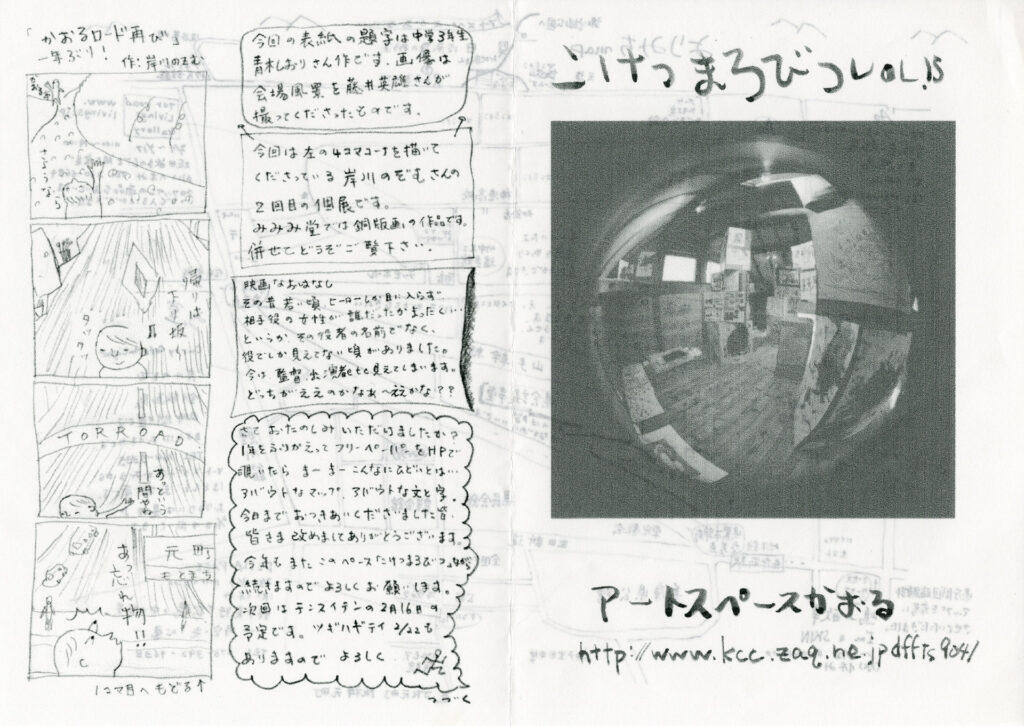 「かおるロード再び」
一年ぶり！
作：岸川のぞむ
さようなら
帰りは
トア坂
タッタッ
TORROAD
あっという
間やね
元町
もとまち
あっ忘れ物!!
1コマ目へもどる↑
今回の表紙の題字は中学3年生
青木しおりさん作です。画像は
会場風景を藤井英雄さんが
撮ってくださったものです。
今回は左の4コマコーナーを描いて
くださっている 岸川のぞむさんの
2回目の個展です。
みみみ堂では銅版画の作品です。
併せてどうぞご覧下さい。
映画なおはなし
その昔若い頃、ヒーローしか目に入らず…
相手役の女性が誰だったかまったく…
というか、その役者の名前でなく、
役でしか見えてない頃がありました。
今は監督、出演者etc見えてしまいます。
どっちがええのかなぁへええかな??
さておたのしみいただけましたか？
1年をふりかえってフリーペーパーをHPで
覗いたら まーまーこんなにひどいとは…
アバウトなマップ、アバウトな文と字。
今日までおつきあいくださいました皆、
皆さま改めましてありがとうございます。
今年もまたこのペースで「けつまろびつ」ながら
続きますのでよろしくお願いします。
次回はテンスイテンの2月16日の
予定です。ツギハギデイ2/22も
ありますので よろしく
つづく
こけつまろびつVOL.15
アートスペースかおる
http://www.kcc.zaq.ne.jp/dffts904/